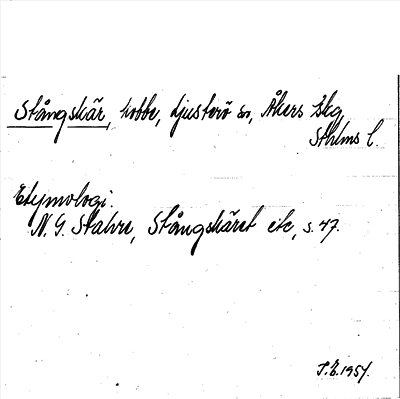 Stångskär, kobbe, Ljusterö sn, Åkers skg
Sthlms l.
Etymologi:
N. G. Stahre, Stångskäret etc, s. 47.
1957.